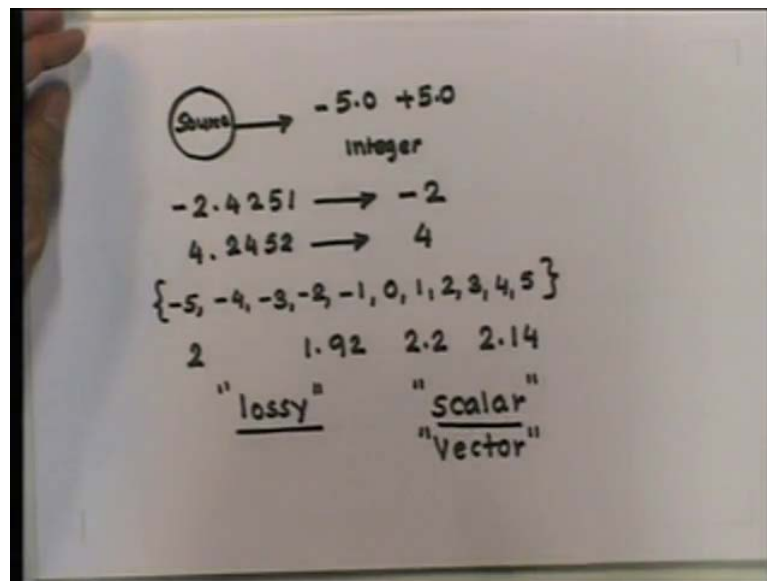 Source → -5.0 +5.0
Integer
-2.4251 → -2
4.2452 → 4
{-5, -4, -3, -2, -1, 0, 1, 2, 3, 4, 5}
2 1.92 2.2 2.14
"lossy" "scalar"
"Vector"